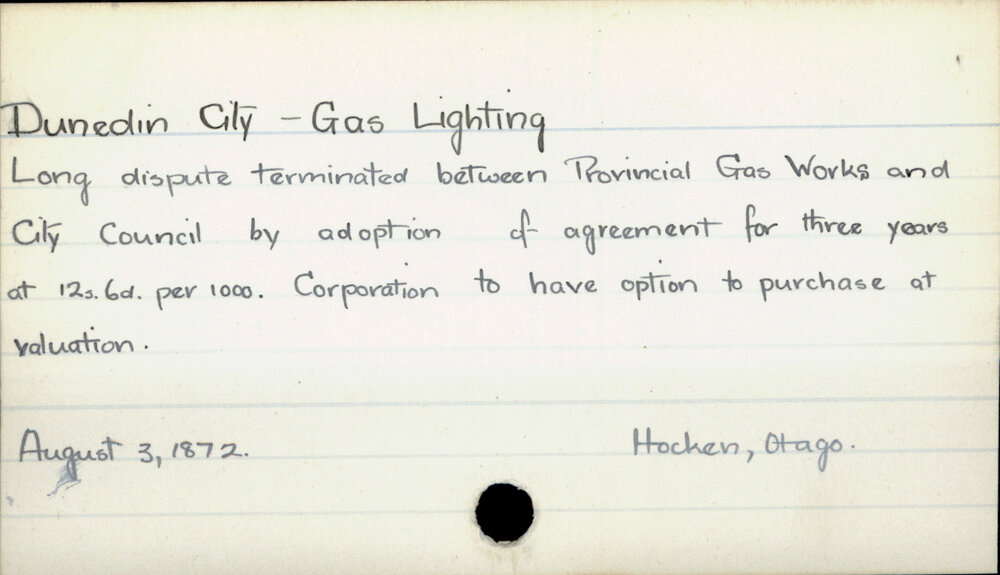 Dunedin City - Gas Lighting
Long dispute terminated between Provincial Gas Works and
City Council by adoption of agreement for three years
at 12s. 6d. per 1000. Corporation to have option to purchase at
valuation.
August 3, 1872. Hocken, Otago.